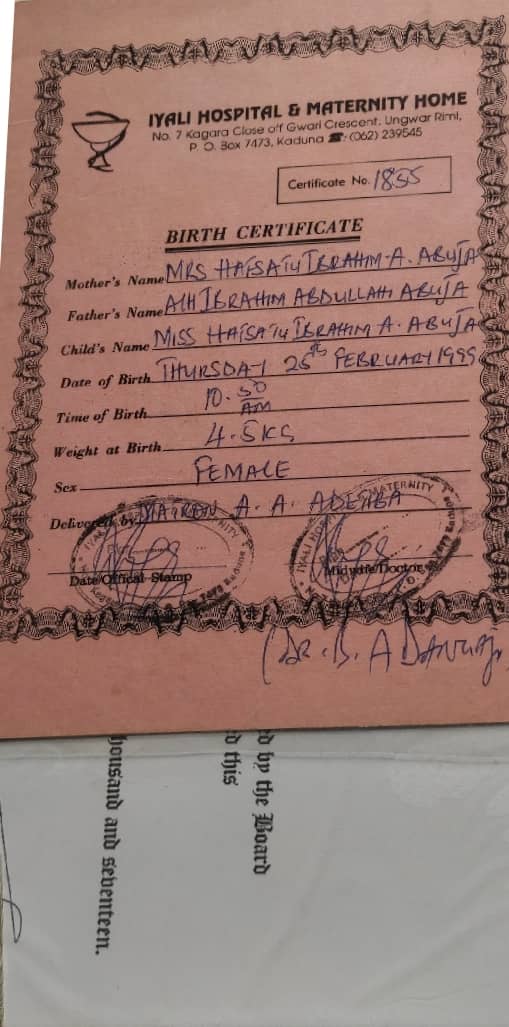 IYALI HOSPITAL & MATERNITY HOME
No. 7 Kagara Close off Gwari Crescent, Ungwar Rimi,
P. O. Box 7473, Kaduna ☎: (062) 239545
Certificate No. 1855
BIRTH CERTIFICATE
Mother's Name MRS HAFSATU IBRAHIM A. ABUJA
Father's Name ALH IBRAHIM ABDULLAHI ABUJA
Child's Name MISS HAFSATU IBRAHIM A. ABUJA
Date of Birth THURSDAY 25th FEBRUARY 1999
Time of Birth 10.50 AM
Weight at Birth 4.5KG
Sex FEMALE
Delivered by MATRON A. A.
Date/Offical Stamp
Midwife/Doctor
(DR. B. A
d by the Board
d this
housand and seventeen.